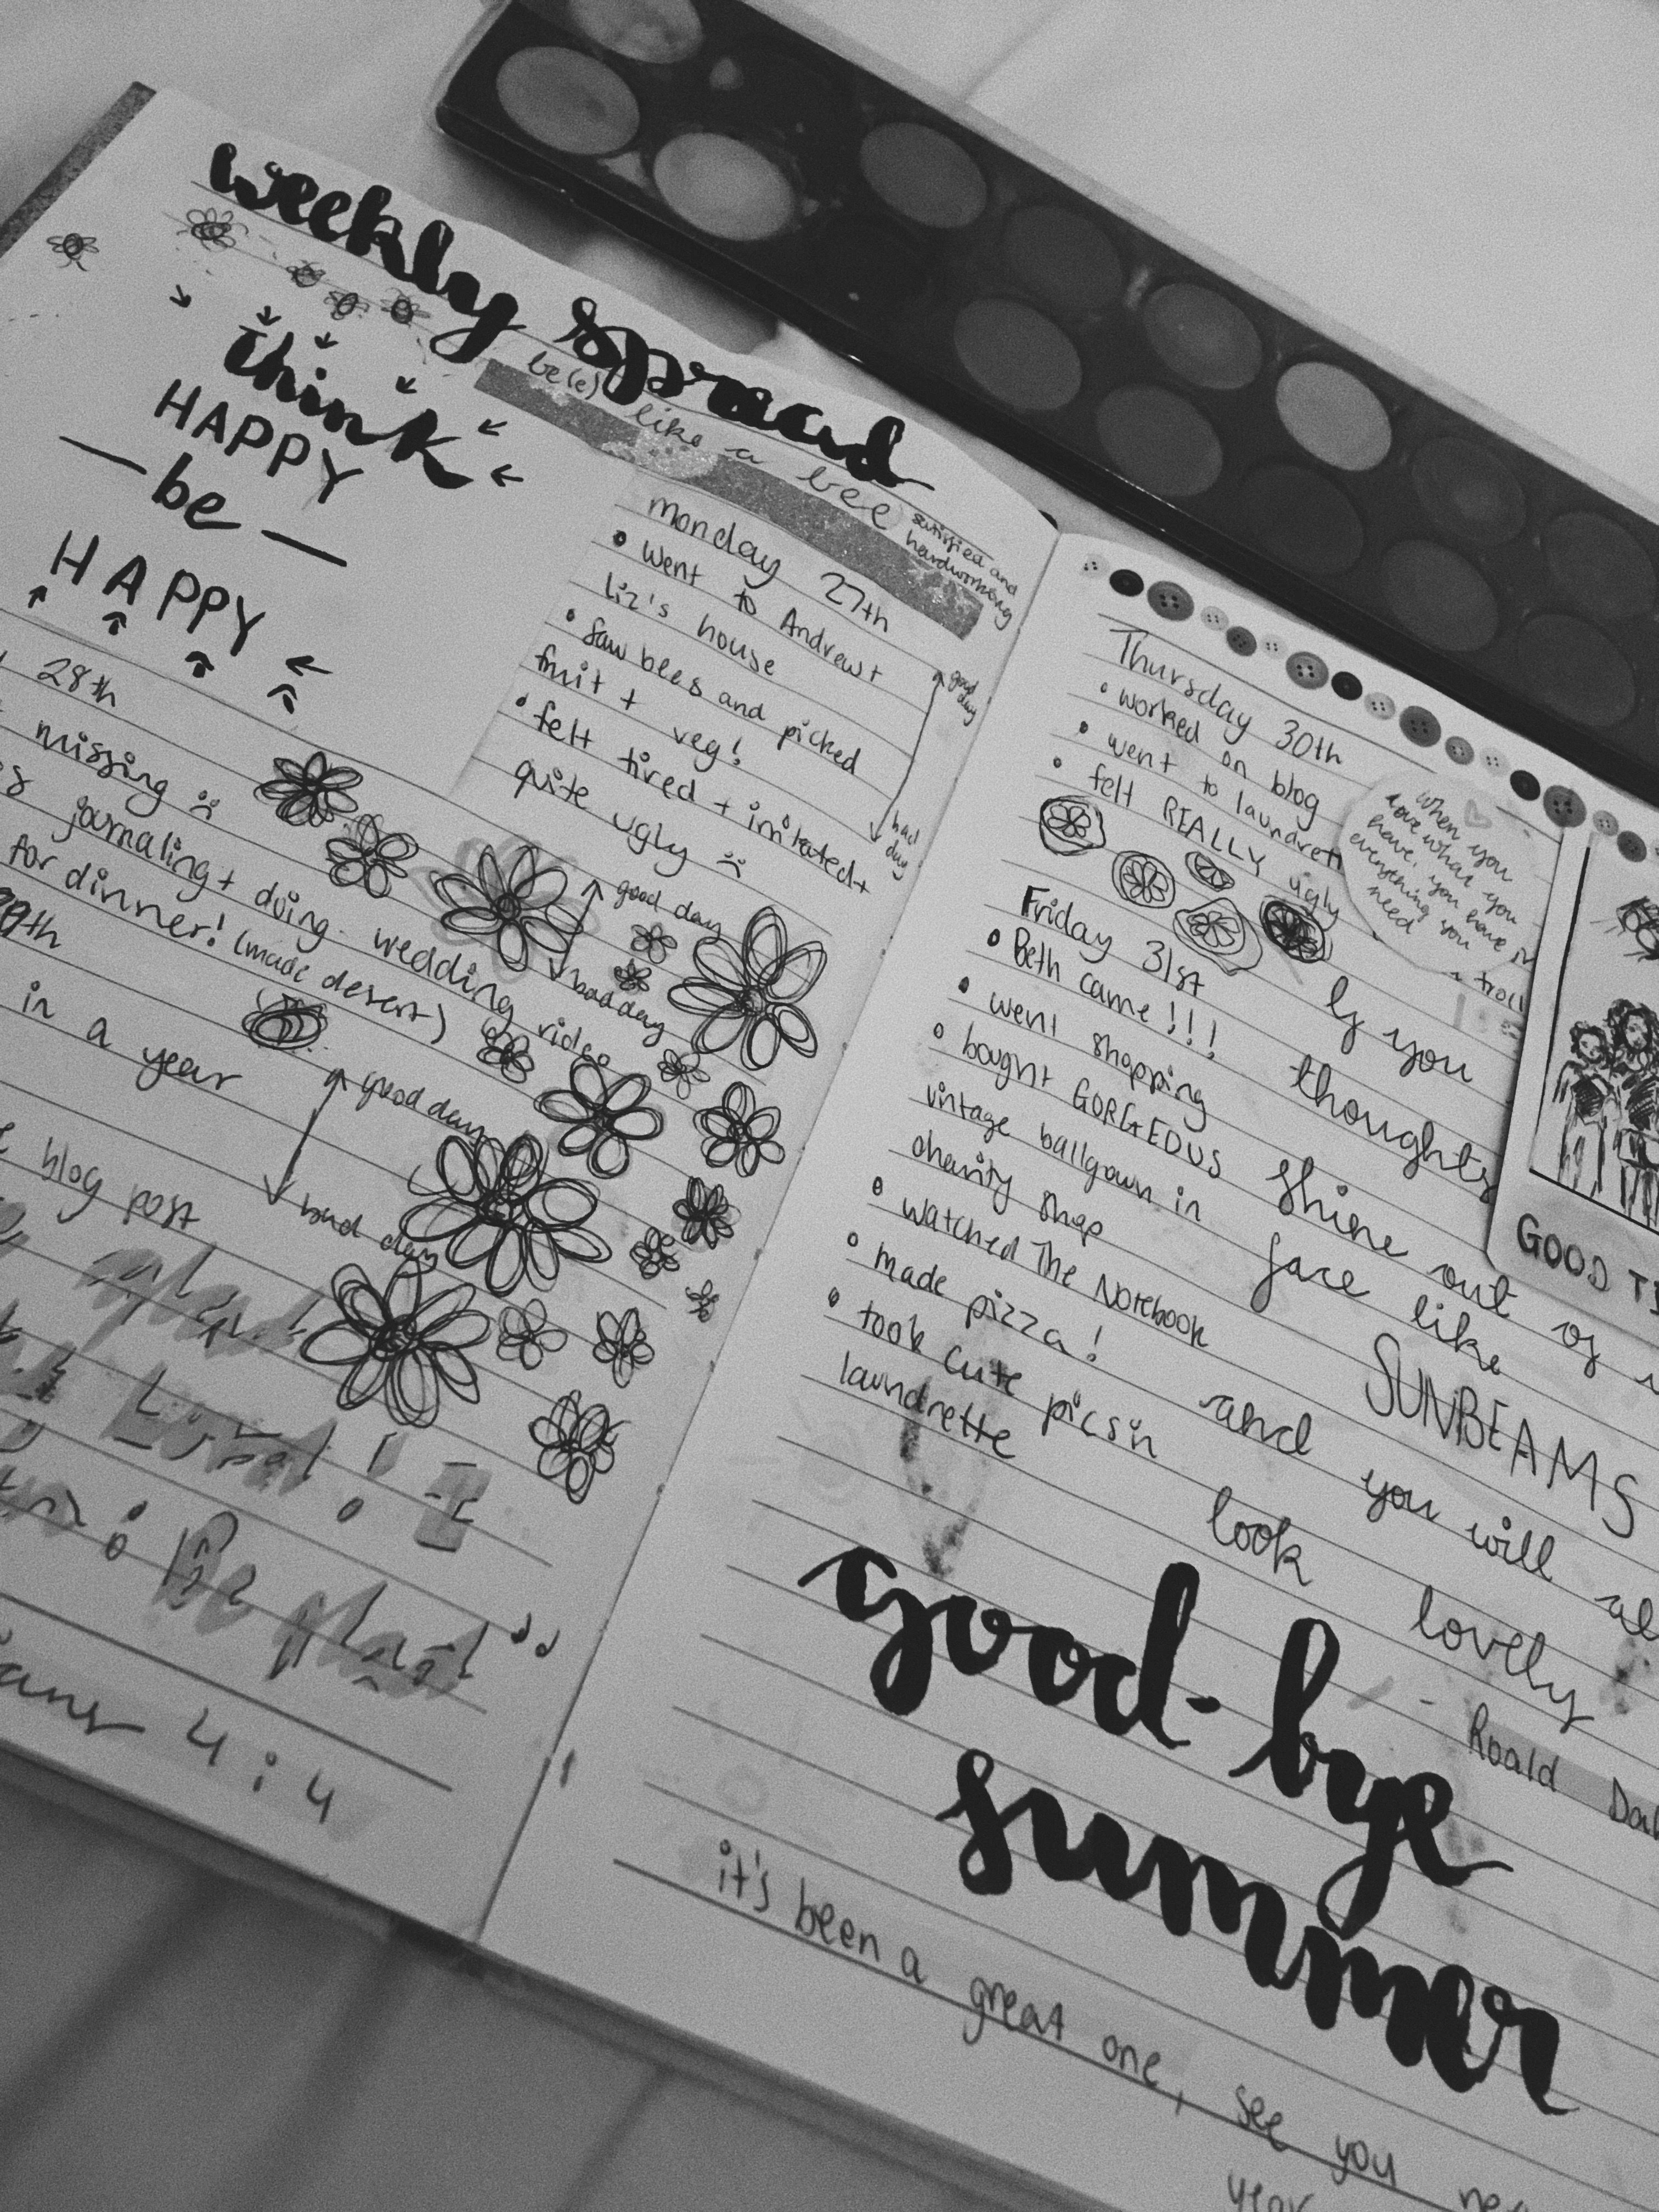 weekly spread
be(e) like a bee
satisfied and
hardworking
think
HAPPY
be
HAPPY
monday 27th
• went to Andrew +
liz's house
• saw bees and picked
fruit + veg!
• felt tired + irritated +
quite ugly :(
good
day
bad
day
28th
missing :(
journaling + doing wedding video
for dinner! (made desert)
good day
bad day
29th
in a year
good day
bad day
blog post
Lord! I
: Be glad!"
4:4
Thursday 30th
• worked on blog
• went to laundrette
• felt REALLY ugly
When you
love what you
have, you have
everything you
need
Friday 31st
• Beth came!!!
• went shopping
• bought GORGEOUS
vintage ballgown in
charity shop
• watched The Notebook
• made pizza!
• took cute pics in
laundrette
ly you
thoughts
shine out of
face like
SUNBEAMS
and you will
look lovely
- Roald
GOOD
good-bye
summer
it's been a great one, see you
year